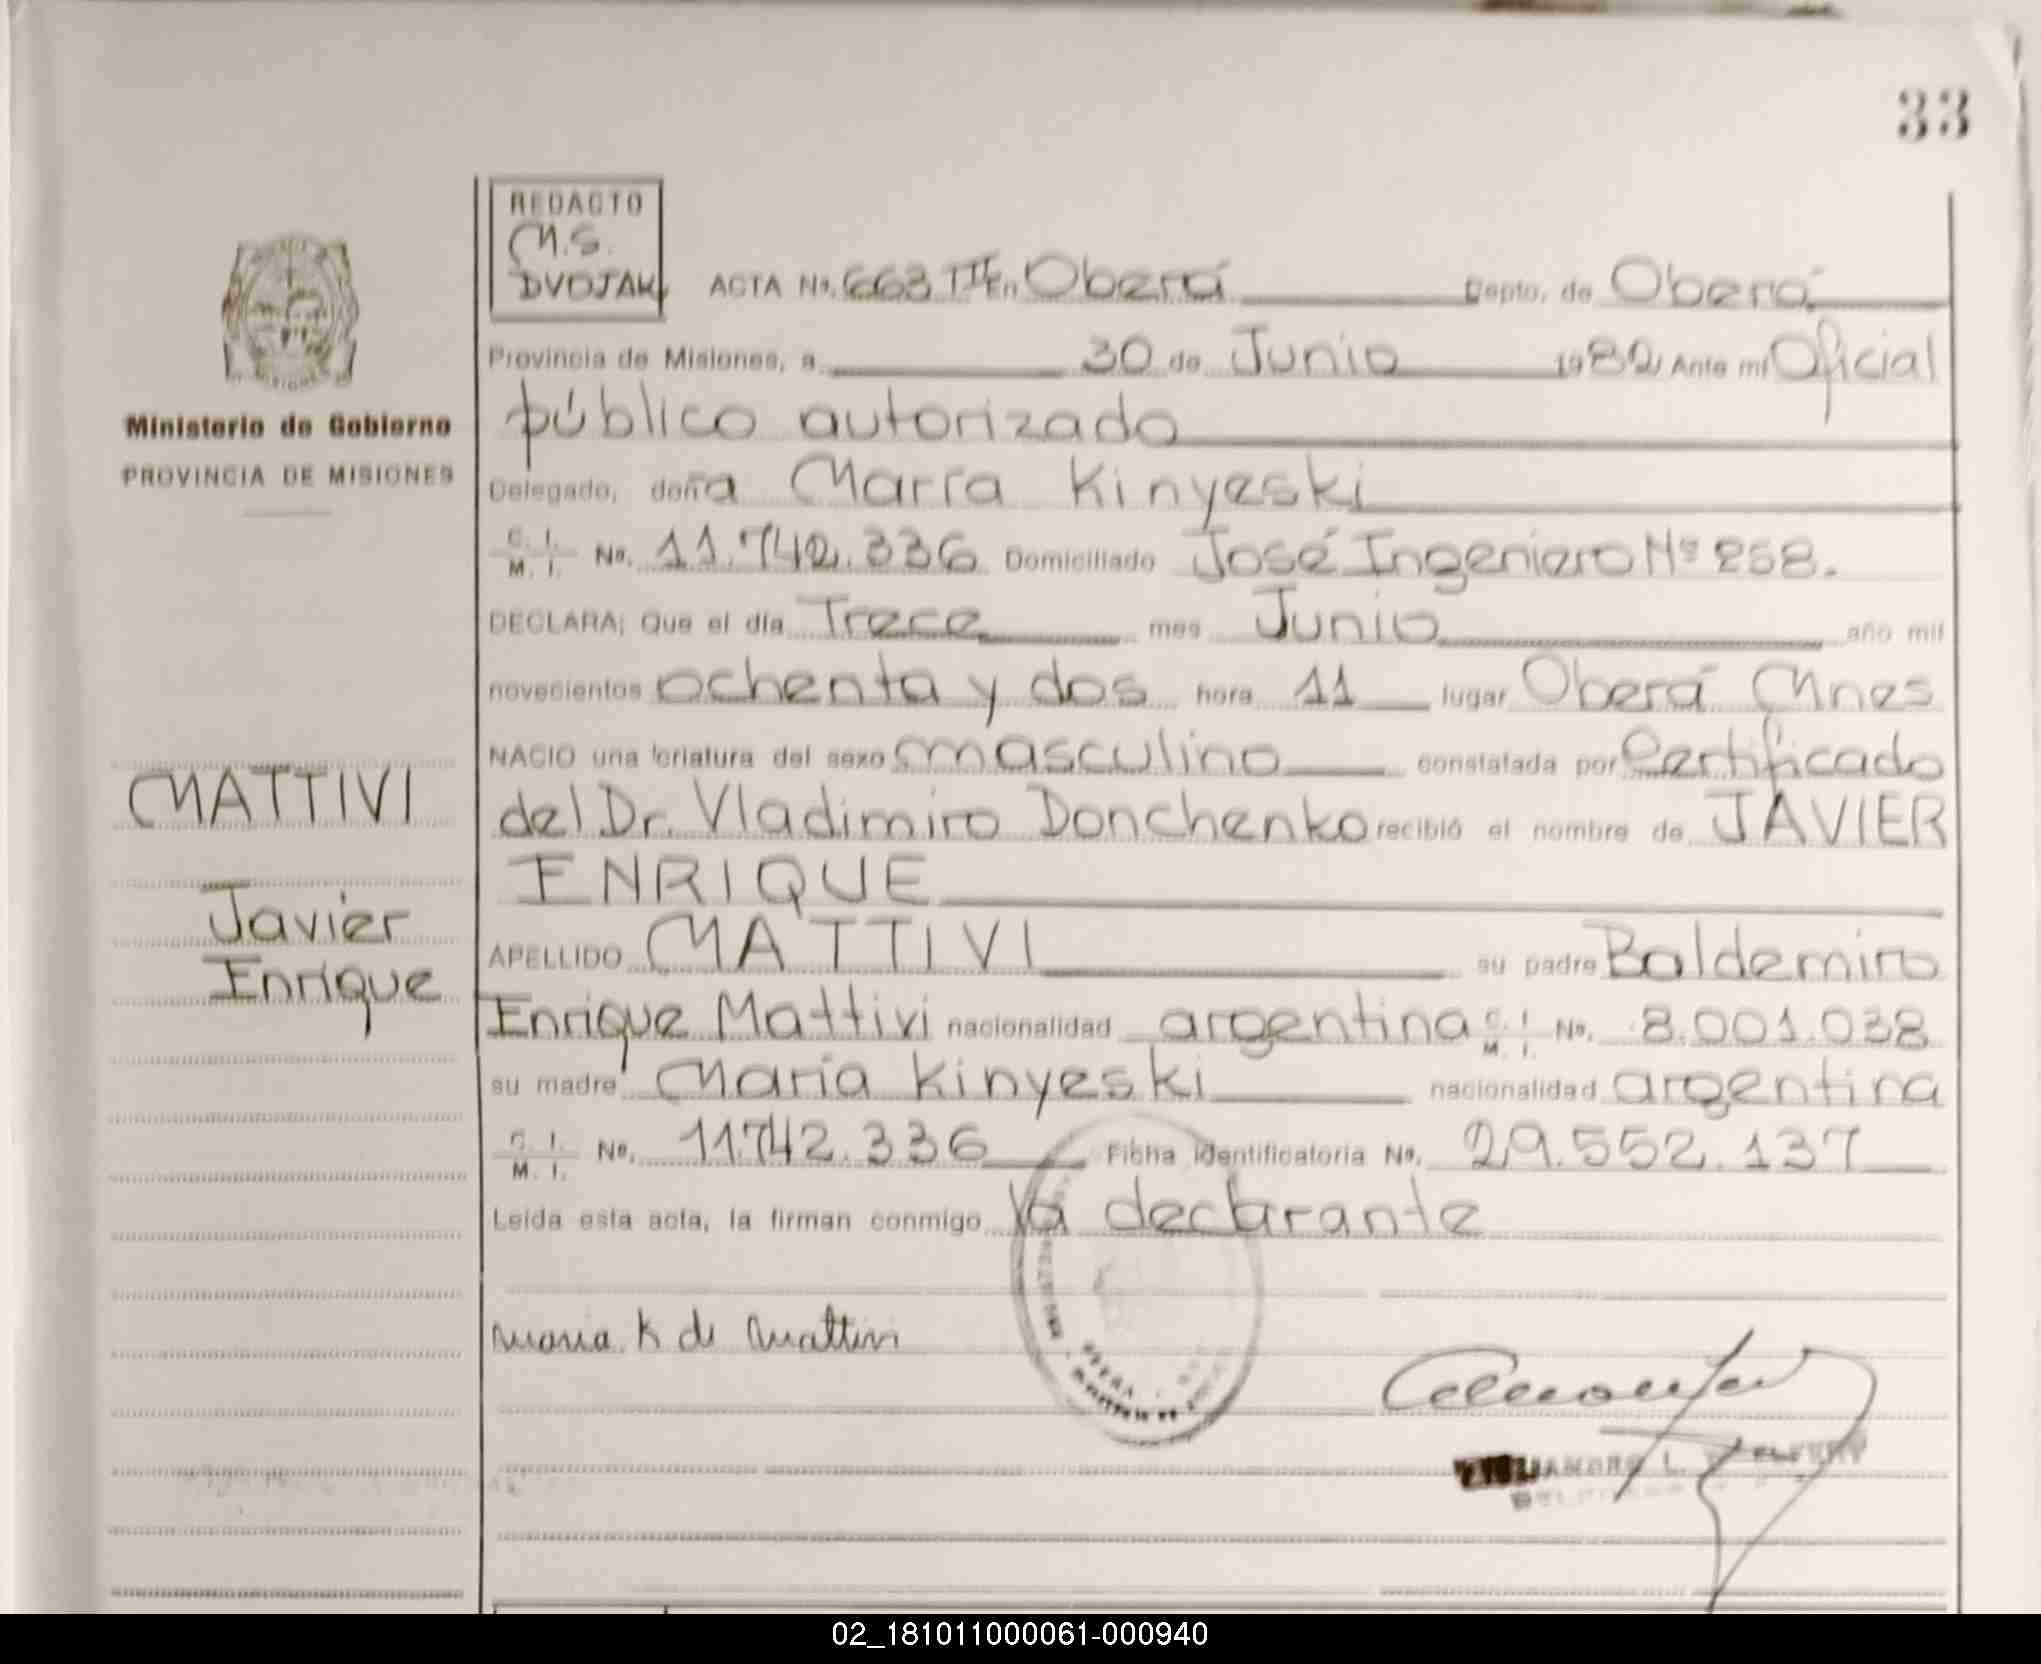 33
REDACTO
M.S.
DVOJAK
ACTA No. 663 TºII En Oberá Depto. de Oberá
Provincia de Misiones, a 30 de Junio 1982 Ante mi Oficial
público autorizado
Ministerio de Gobierno
PROVINCIA DE MISIONES
Delegado, doña María Kinyeski
C. I.
M. I. No. 11.742.336 Domiciliado José Ingeniero Nº 258.
DECLARA; Que el día Trece mes Junio año mil
novecientos ochenta y dos hora 11 lugar Oberá Mnes
NACIO una criatura del sexo masculino constatada por Certificado
MATTIVI
del Dr. Vladimiro Donchenko recibió el nombre de JAVIER
ENRIQUE
Javier
Enrique
APELLIDO MATTIVI su padre Baldemiro
Enrique Mattivi nacionalidad argentina C. I.
M. I. No. 8.001.038
su madre María Kinyeski nacionalidad argentina
C. I.
M. I. No. 11.742.336 Ficha identificatoria No. 29.552.137
Leída esta acta, la firman conmigo la declarante
Maria K de Mattivi
02_181011000061-000940